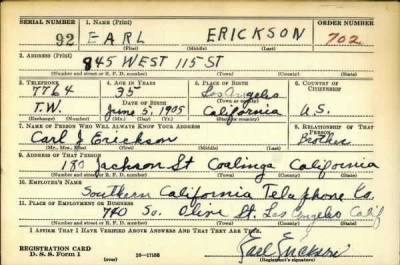 SERIAL NUMBER 1. NAME (Print) ORDER NUMBER
92 EARL ERICKSON 702
(First) (Middle) (Last)
2. ADDRESS (Print)
845 WEST 115 ST
(Number and street or R. F. D. number) (Town) (County) (State)
3. TELEPHONE 4. AGE IN YEARS 5. PLACE OF BIRTH 6. COUNTRY OF CITIZENSHIP
7764 35 Los Angeles
(Town or county)
T.W. DATE OF BIRTH June 5, 1905 California U.S.
(Exchange) (Number) (Mo.) (Day) (Yr.) (State or country)
7. NAME OF PERSON WHO WILL ALWAYS KNOW YOUR ADDRESS 8. RELATIONSHIP OF THAT PERSON
Carl J. Erickson Brother
(Mr., Mrs., Miss) (First) (Middle) (Last)
9. ADDRESS OF THAT PERSON
Jackson St Coalinga California
(Number and street or R. F. D. number) (Town) (County) (State)
10. EMPLOYER'S NAME
Southern California Telephone Co.
11. PLACE OF EMPLOYMENT OR BUSINESS
740 So. Olive St. Los Angeles Calif
(Number and street or R. F. D. number) (Town) (County) (State)
I AFFIRM THAT I HAVE VERIFIED ABOVE ANSWERS AND THAT THEY ARE TRUE.
REGISTRATION CARD
D. S. S. Form 1 (over) 16-17105 Earl Erickson
(Registrant's signature)